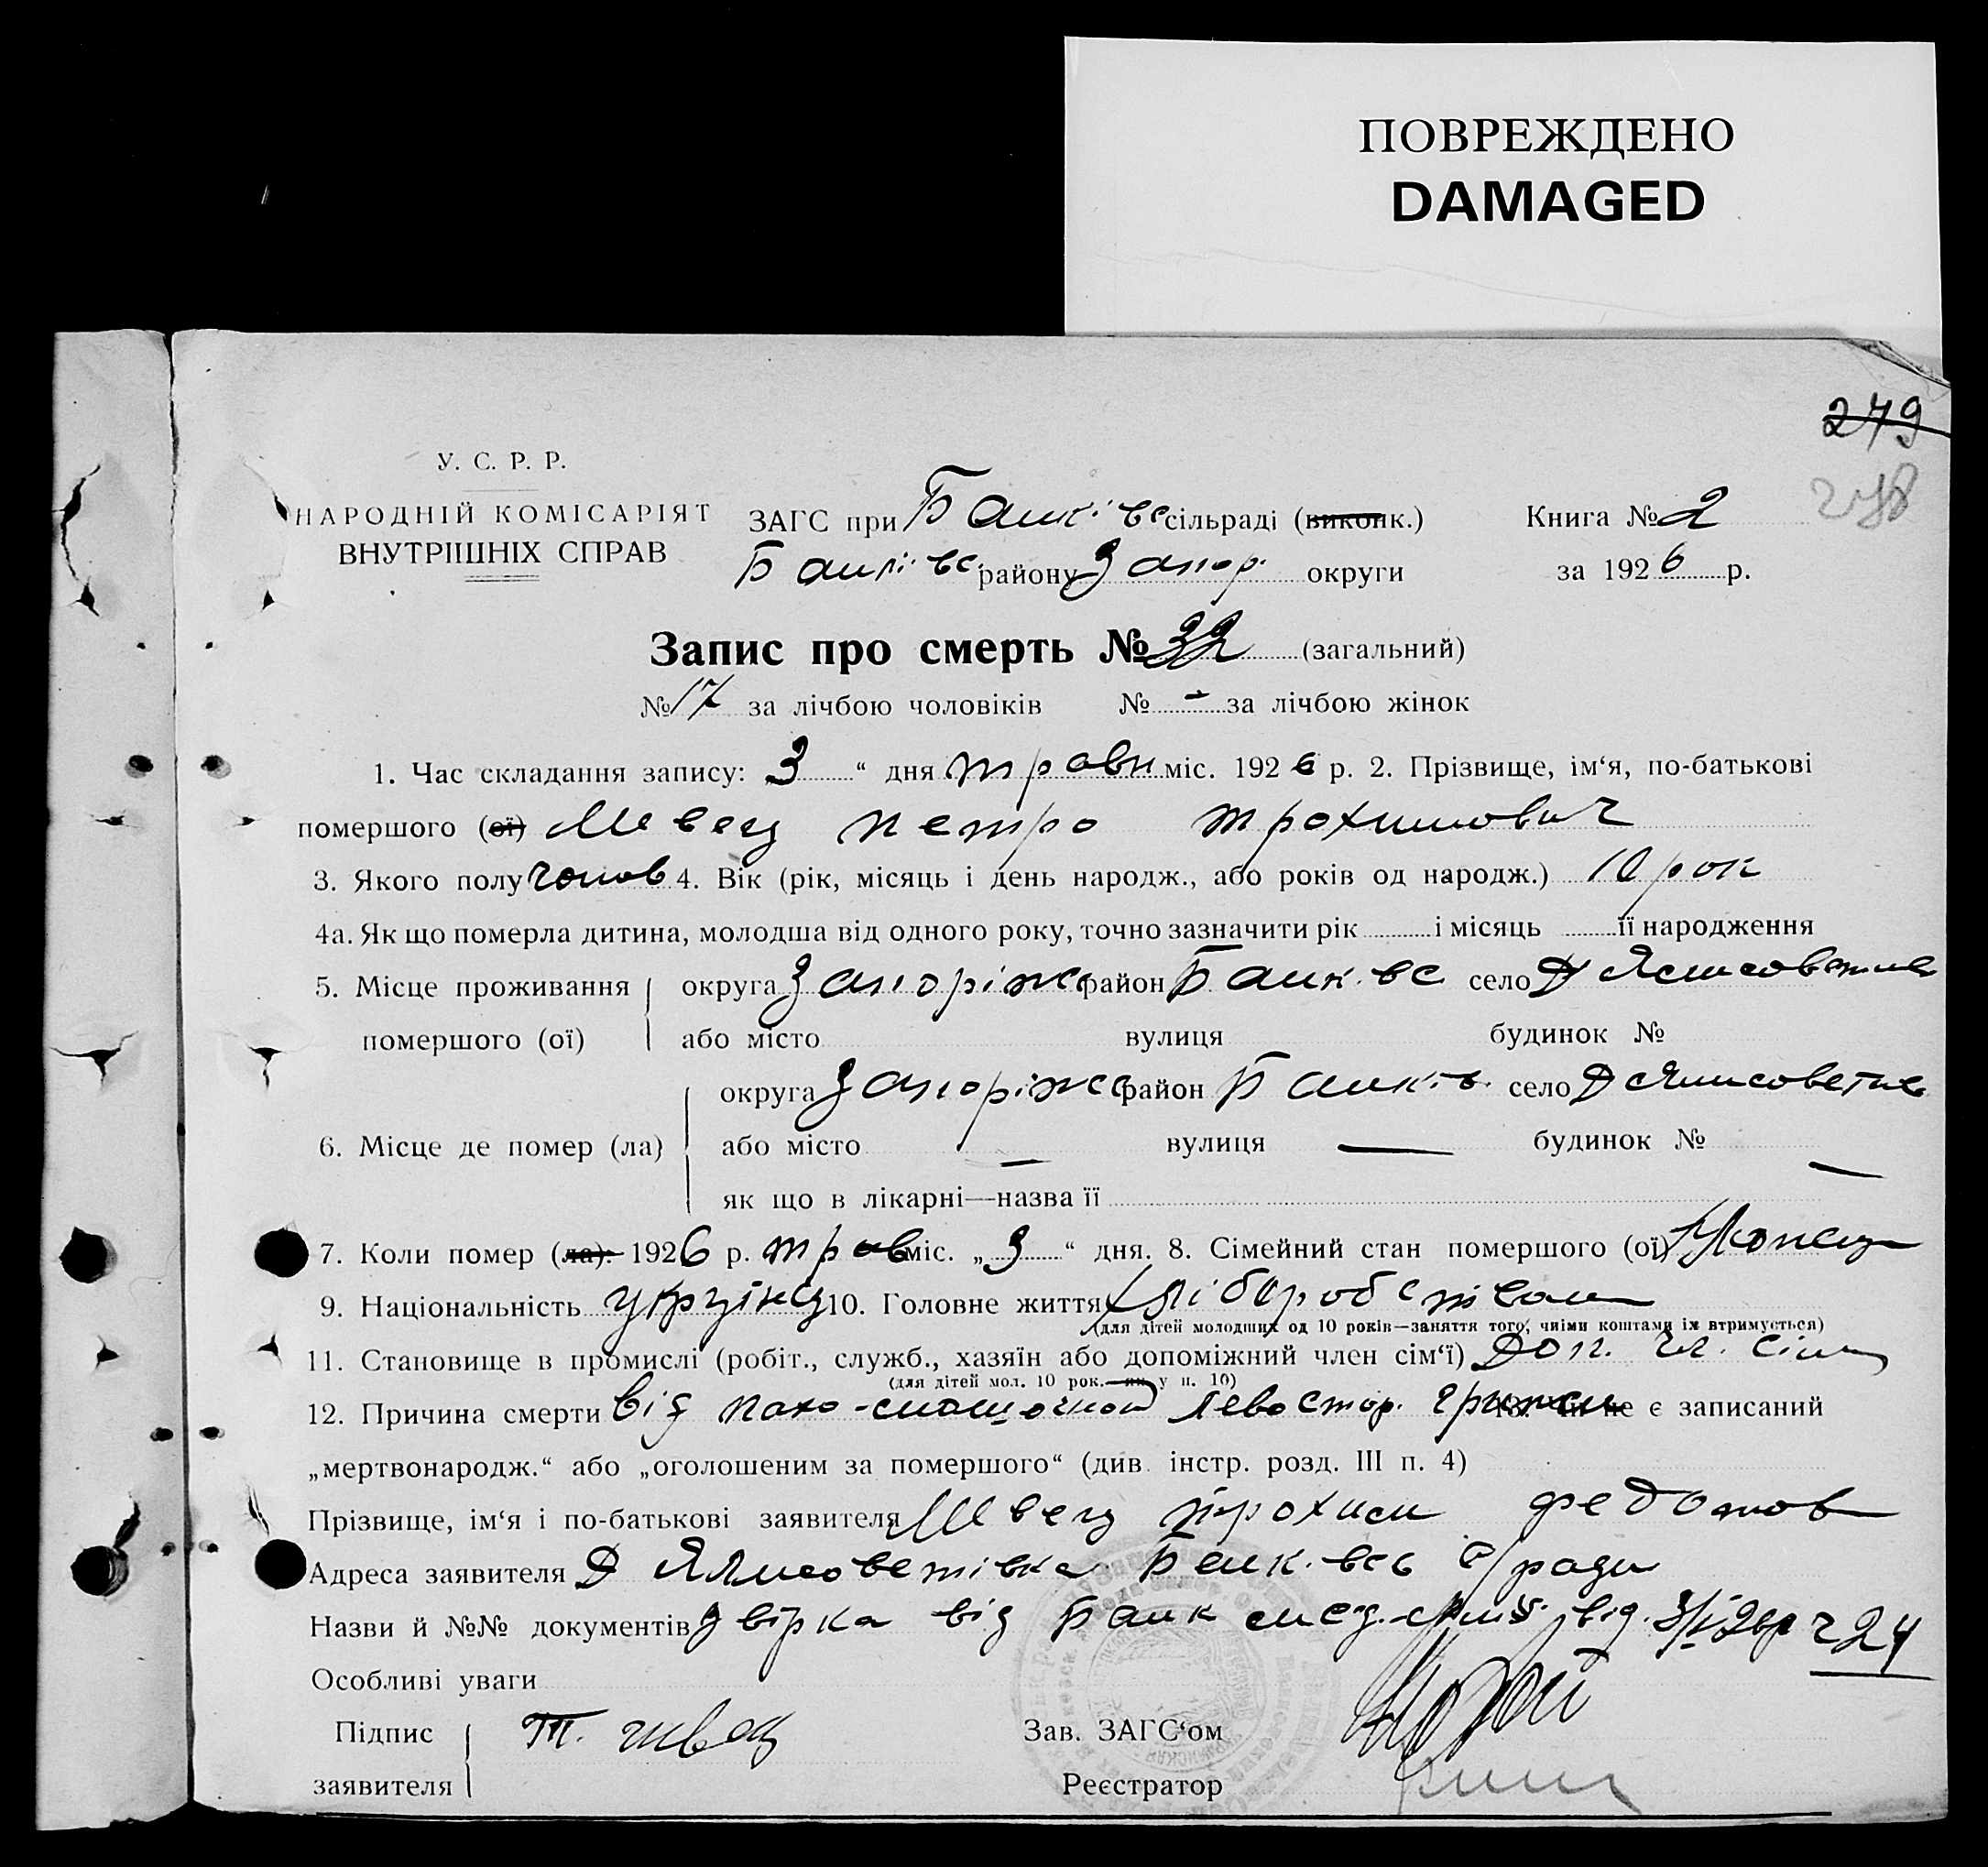 ПОВРЕЖДЕНО
DAMAGED
279
278
У. С. Р. Р.
НАРОДНІЙ КОМІСАРІЯТ
ВНУТРІШНІХ СПРАВ
ЗАГС при Балкі вс сільраді (виконк.) Книга № 2
Балківс. району Запор. округи за 1926 р.
Запис про смерть № 32 (загальний)
№ 17 за лічбою чоловіків № - за лічбою жінок
1. Час складання запису: 3 “ дня травн міс. 1926 р. 2. Прізвище, ім‘я, по-батькові
помершого (ої) Швец петро трохимович
3. Якого полу чолов 4. Вік (рік, місяць і день народж., або років од народж.) 10 рок
4а. Як що померла дитина, молодша від одного року, точно зазначити рік і місяць її народження
5. Місце проживання округа Запоріжс район Балк. вс село
помершого (ої) або місто вулиця будинок №
округа Запоріжс район Балків село
6. Місце де помер (ла) або місто — вулиця — будинок № —
як що в лікарні—назва її
7. Коли помер (ла): 1926 р. трав міс. „ 3 “ дня. 8. Сімейний стан помершого (ої)
9. Національність 10. Головне життя хліборобством
(для дітей молодших од 10 років—заняття того, чиїми коштами їх втримується)
11. Становище в промислі (робіт., служб., хазяїн або допоміжний член сім‘ї) Доп. чл. сім
(для дітей мол. 10 рок.— як у п. 10)
12. Причина смерти від пахо-мошочной левостор. грижи 13. Чи не є записаний
„мертвонародж.“ або „оголошеним за помершого“ (див. інстр. розд. III п. 4)
Прізвище, ім‘я і по-батькові заявителя Швец трохим федотов
Адреса заявителя Д Ялисоветівка Балк. всь с/ради
Назви й №№ документів звірка від Балк мед. від. 3/V 26р ч 24
Особливі уваги
Підпис Т. швец Зав. ЗАГС‘ом
заявителя Реєстратор